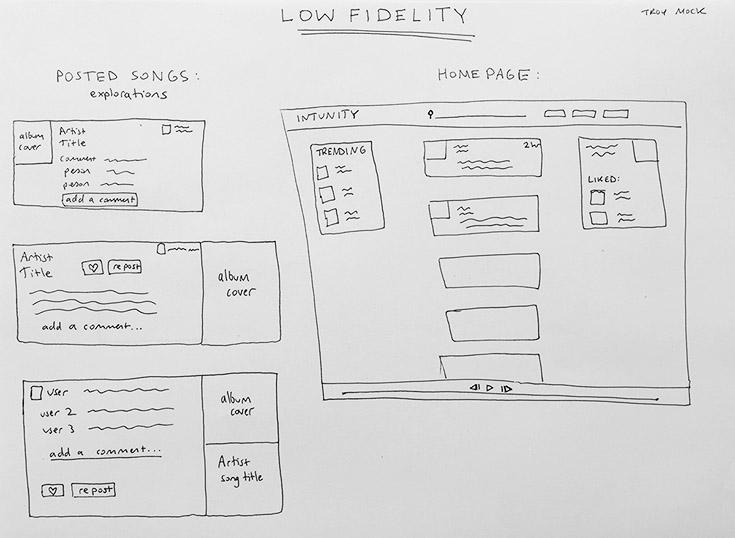 LOW FIDELITY
TROY MOCK
POSTED SONGS:
explorations
album
cover
Artist
Title
comment
person
person
add a comment
Artist
Title
repost
add a comment...
album
cover
user
user 2
user 3
add a comment...
repost
album
cover
Artist
song title
HOMEPAGE:
INTUNITY
TRENDING
LIKED: